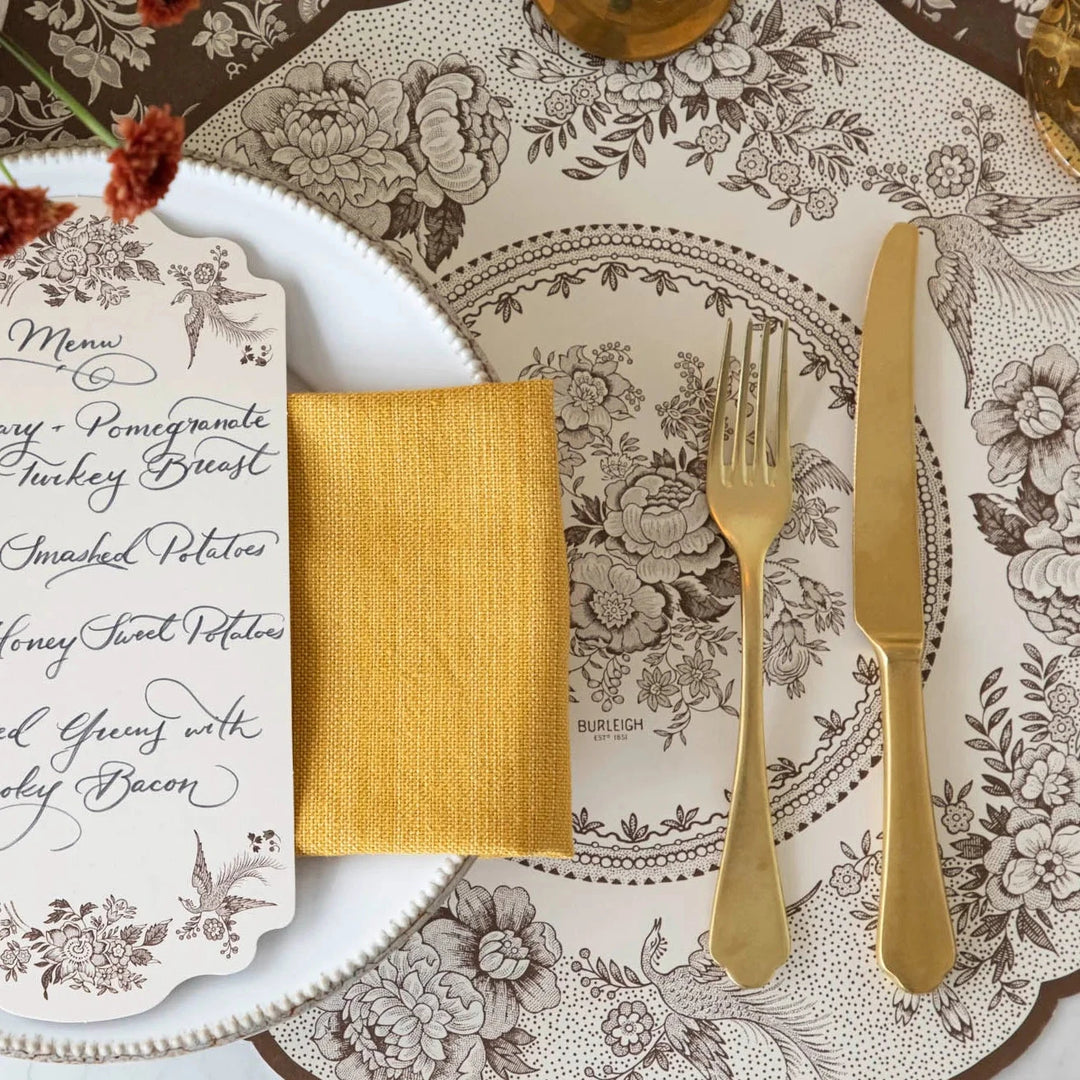 Menu
ary + Pomegranate
Turkey Breast
Smashed Potatoes
Honey Sweet Potatoes
ed Greens with
oky Bacon
BURLEIGH
ESTD 1851